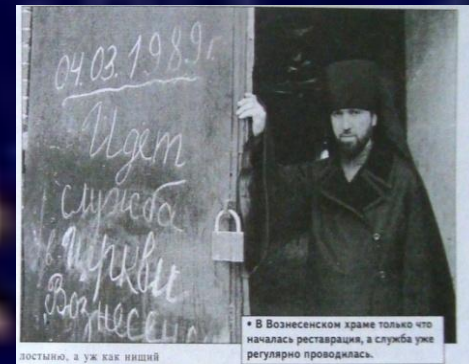 04.03.1989г
Идет
служба
в Церкви
Вознесен
• В Вознесенском храме только что
началась реставрация, а служба уже
регулярно проводилась.
достыню, а уж как нищий